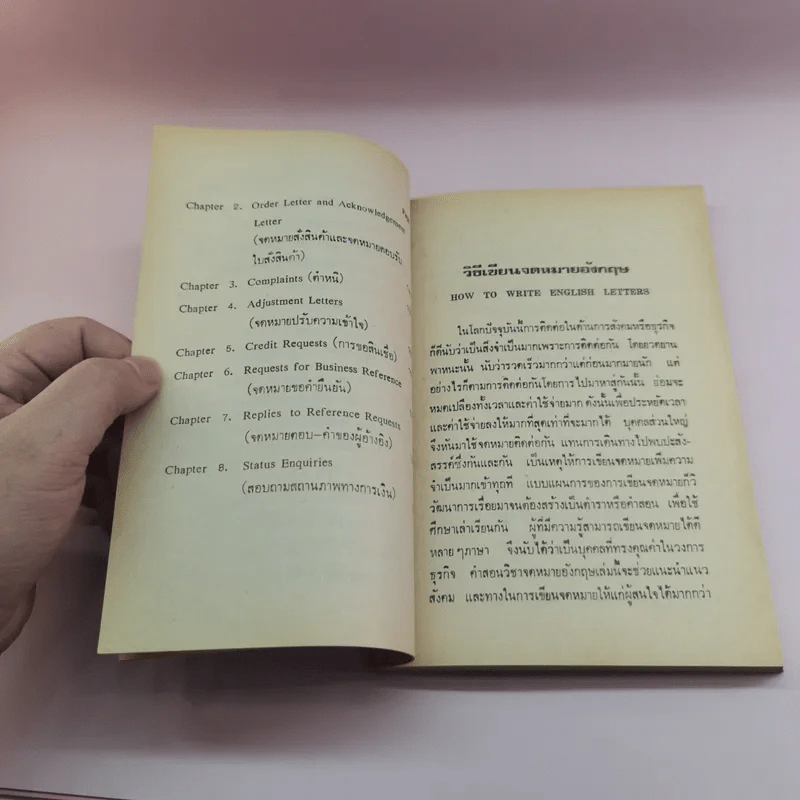 Chapter 2. Order Letter and Acknowledgement
Letter
(จดหมายสั่งสินค้าและจดหมายตอบรับ
ใบสั่งสินค้า)
Chapter 3. Complaints (คำหนิ)
Chapter 4. Adjustment Letters
(จดหมายปรับความเข้าใจ)
Chapter 5. Credit Requests (การขอสินเชื่อ)
Chapter 6. Requests for Business Reference
(จดหมายขอคำยืนยัน)
Chapter 7. Replies to Reference Requests
(จดหมายตอบ-คำของผู้อ้างอิง)
Chapter 8. Status Enquiries
(สอบถามสถานภาพทางการเงิน)
วิธีเขียนจดหมายอังกฤษ
HOW TO WRITE ENGLISH LETTERS
ในโลกปัจจุบันนี้การติดต่อในด้านการสังคมหรือธุรกิจ
ก็ดีนับว่าเป็นสิ่งจำเป็นมากเพราะการติดต่อกัน โดยยวดยาน
พาหนะนั้น นับว่ารวดเร็วมากกว่าแต่ก่อนมากมายนัก แต่
อย่างไรก็ตามการติดต่อกันโดยการไปมาหาสู่กันนั้น ย่อมจะ
หมดเปลืองทั้งเวลาและค่าใช้จ่ายมาก ดังนั้นเพื่อประหยัดเวลา
และค่าใช้จ่ายลงให้มากที่สุดเท่าที่จะมากได้ บุคคลส่วนใหญ่
จึงหันมาใช้จดหมายติดต่อกัน แทนการเดินทางไปพบปะสัง-
สรรค์ซึ่งกันและกัน เป็นเหตุให้การเขียนจดหมายเพิ่มความ
จำเป็นมากเข้าทุกที แบบแผนการของการเขียนจดหมายก็วิ
วัฒนาการเรื่อยมาจนต้องสร้างเป็นตำราหรือคำสอน เพื่อใช้
ศึกษาเล่าเรียนกัน ผู้ที่มีความรู้สามารถเขียนจดหมายได้ดี
หลายๆภาษา จึงนับได้ว่าเป็นบุคคลที่ทรงคุณค่าในวงการ
ธุรกิจ คำสอนวิชาจดหมายอังกฤษเล่มนี้จะช่วยแนะนำแนว
สังคม และทางในการเขียนจดหมายให้แก่ผู้สนใจได้มากกว่า